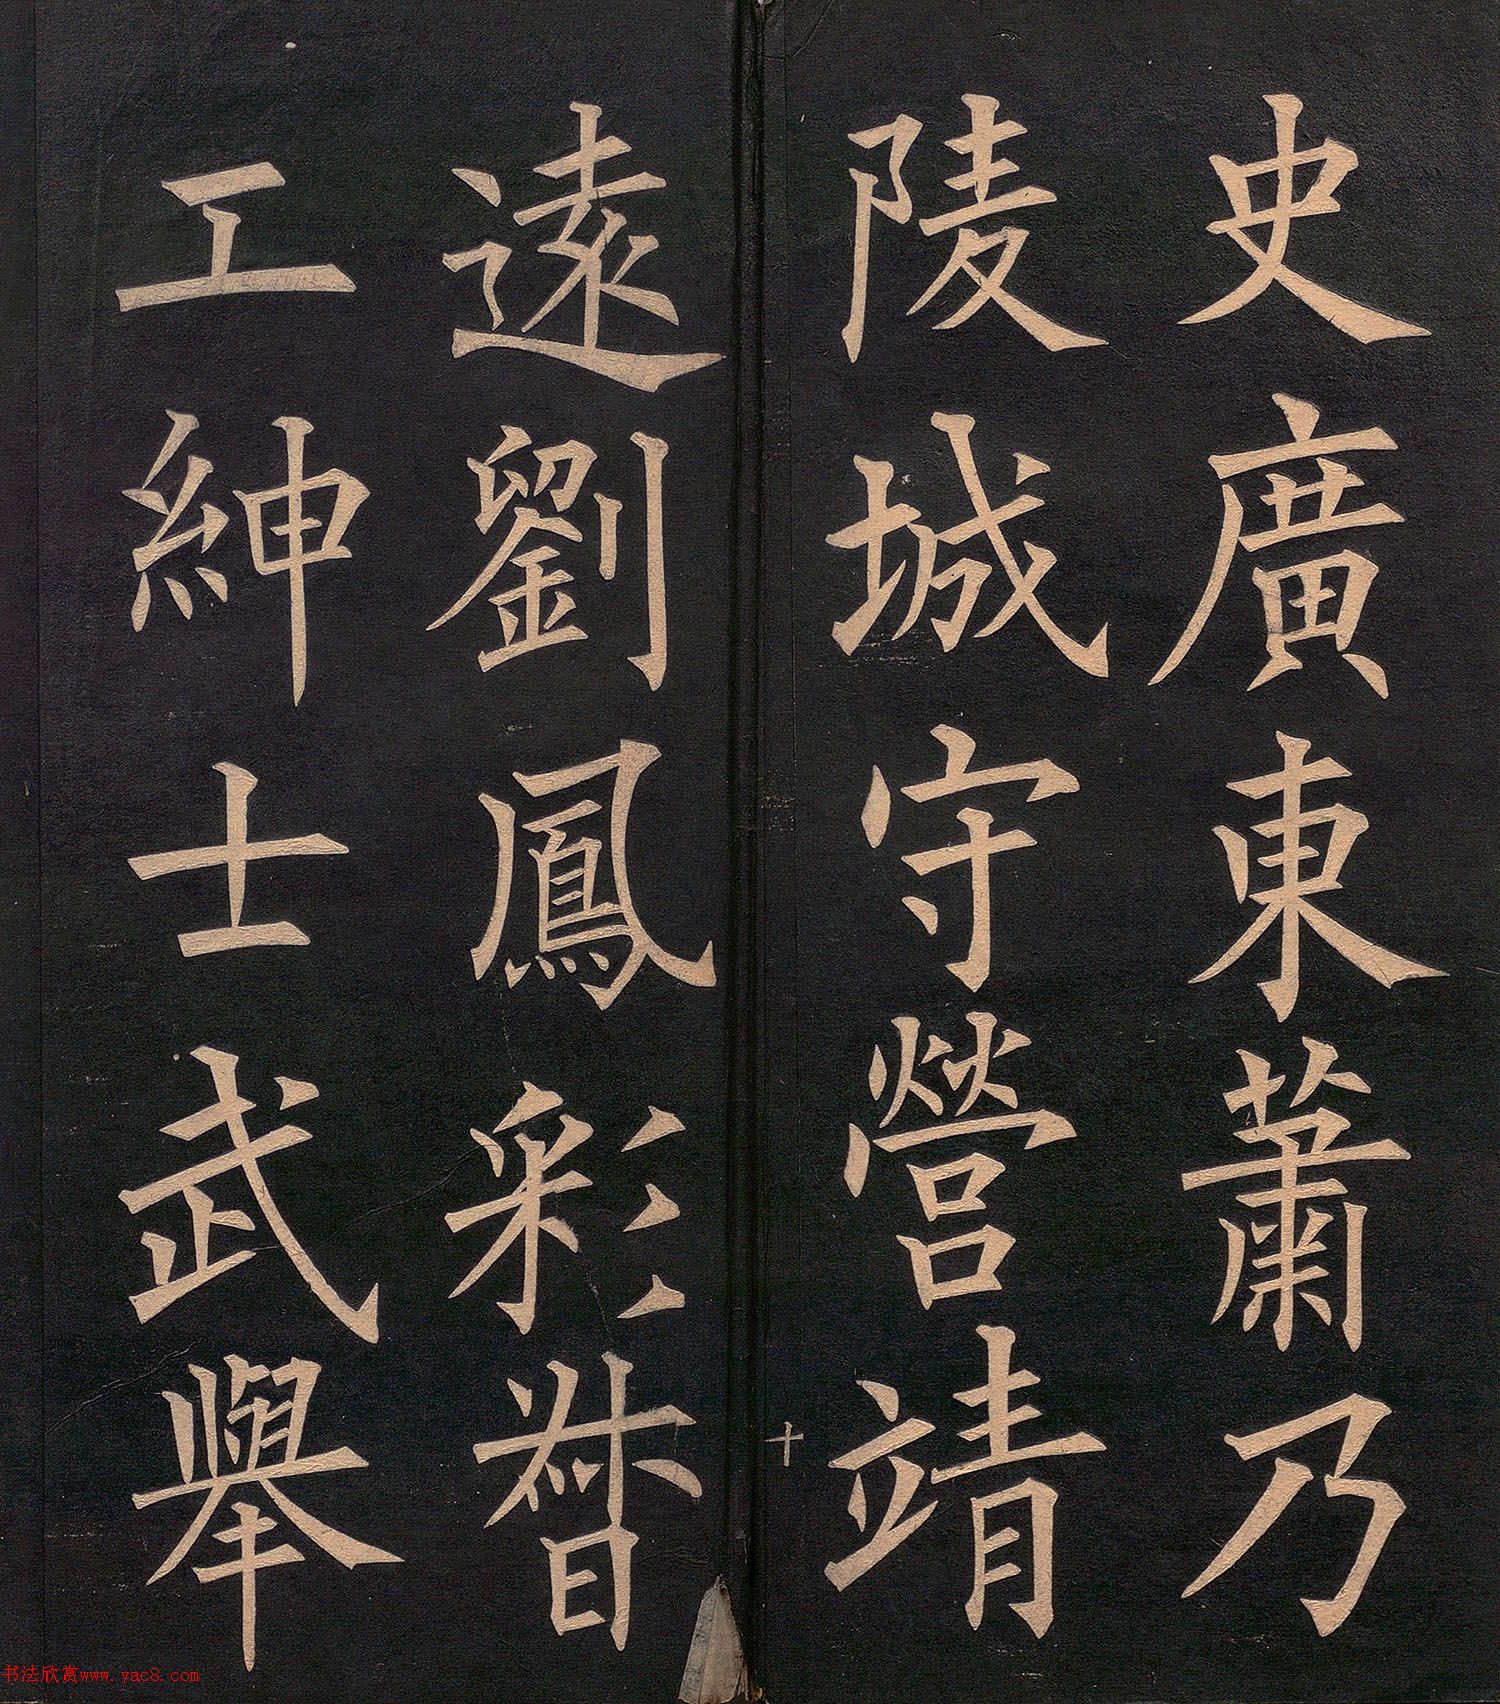 史廣東蕭乃
陵城守營靖
遠劉鳳彩督
工紳士武舉
十
书法欣赏www.yac8.com